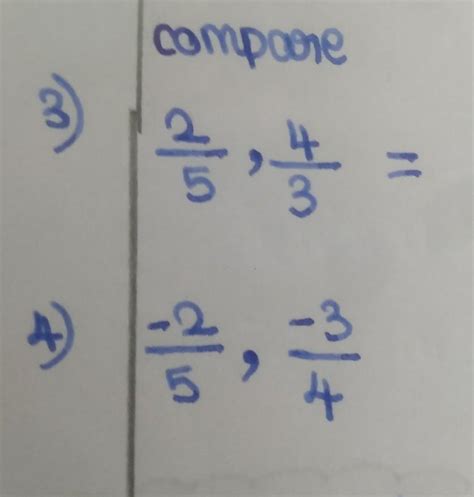 compare
3) 2/5 , 4/3 =
4) -2/5 , -3/4